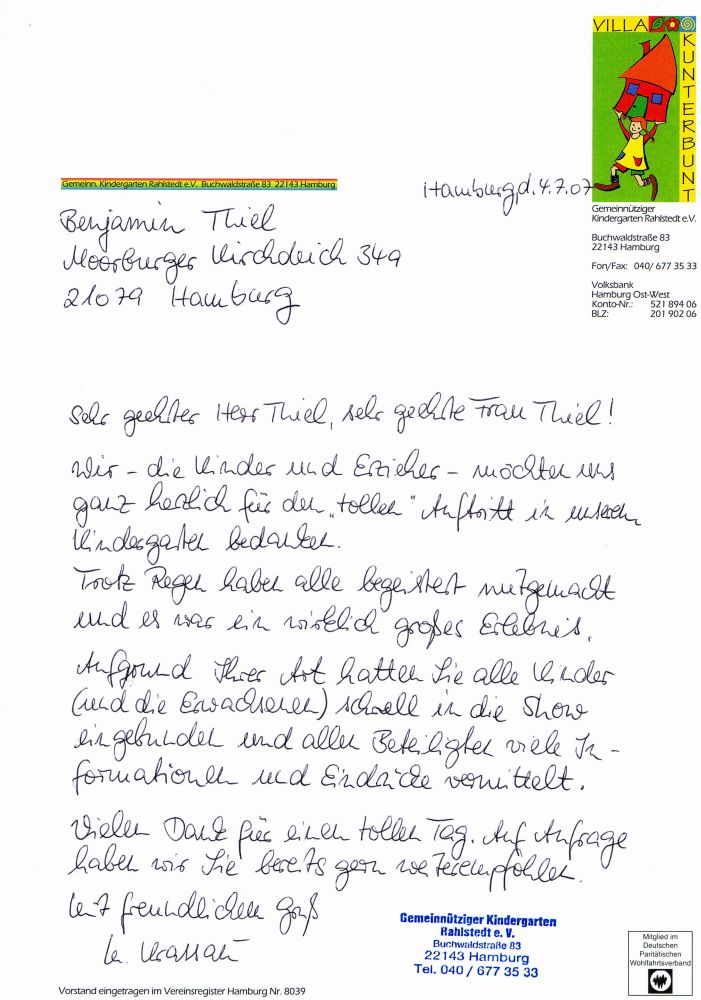 VILLA
KUNTERBUNT
Gemeinn. Kindergarten Rahlstedt e.V. Buchwaldstraße 83 22143 Hamburg
Hamburg, d. 4.7.07
Gemeinnütziger
Kindergarten Rahlstedt e.V.
Buchwaldstraße 83
22143 Hamburg
Fon/Fax: 040/ 677 35 33
Volksbank
Hamburg Ost-West
Konto-Nr.: 521 894 06
BLZ: 201 902 06
Benjamin Thiel
Moorburger Kirchdeich 349
21079 Hamburg
Sehr geehrter Herr Thiel, sehr geehrte Frau Thiel!
Wir – die Kinder und Erzieher – möchten uns
ganz herzlich für den „tollen" Auftritt in unserem
Kindergarten bedanken.
Trotz Regen haben alle begeistert mitgemacht
und es war ein wirklich großes Erlebnis.
Aufgrund Ihrer Art hatten Sie alle Kinder
(und die Erwachsenen) schnell in die Show
eingebunden und allen Beteiligten viele In-
formationen und Eindrücke vermittelt.
Vielen Dank für einen tollen Tag. Auf Anfrage
haben wir Sie bereits gern weiterempfohlen.
Mit freundlichem Gruß
Gemeinnütziger Kindergarten
Rahlstedt e. V.
Buchwaldstraße 83
22143 Hamburg
Tel. 040 / 677 35 33
Mitglied im
Deutschen
Paritätischen
Wohlfahrtsverband
Vorstand eingetragen im Vereinsregister Hamburg Nr. 8039